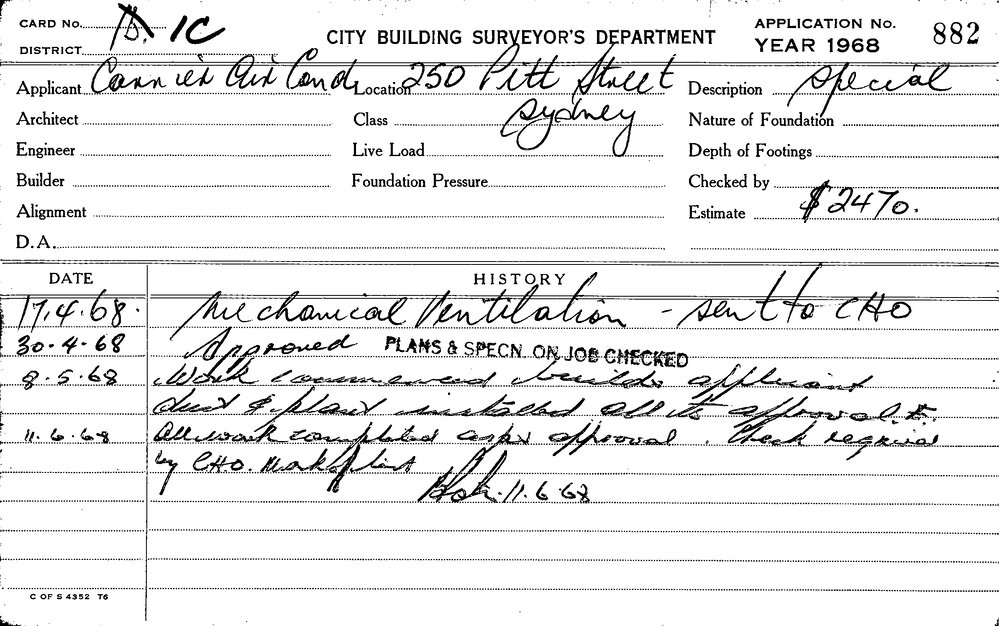 CARD No. 1C
DISTRICT
CITY BUILDING SURVEYOR'S DEPARTMENT
APPLICATION No. 882
YEAR 1968
Applicant Carrier Air Cond. Location 250 Pitt Street Description Special
Architect Class Sydney Nature of Foundation
Engineer Live Load Depth of Footings
Builder Foundation Pressure Checked by
Alignment Estimate $2470.
D.A.
DATE HISTORY
17.4.68. Mechanical Ventilation - sent to CHO
30.4.68 Approved PLANS & SPECN. ON JOB CHECKED
8.5.68 Work commenced builder applicant
duct & plant installed all to approval
11.6.68 All work completed as per approval. Check required
by CHO. 
11.6.68
C OF S 4352 T6